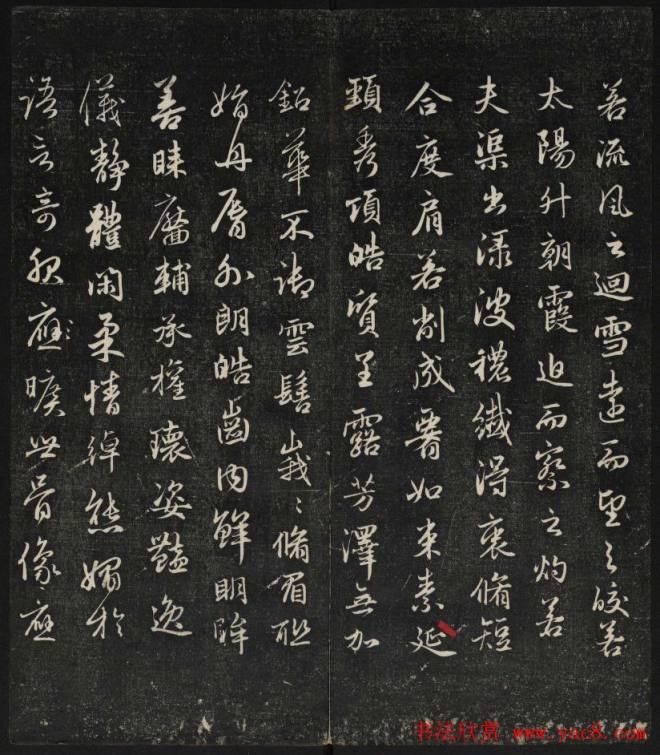 若流風之迴雪遠而望之皎若
太陽升朝霞迫而察之灼若
夫渠出淥波穠纖得衷脩短
合度肩若削成要如束素延
頸秀項皓質呈露芳澤無加
鉛華不御雲髻峩〻脩眉聯
娟丹脣外朗皓齒内鮮明眸
善睞靨輔承權瓌姿豔逸
儀靜體閑柔情綽態媚於
語言奇服應曠世骨像應
书法欣赏 www.yac8.com